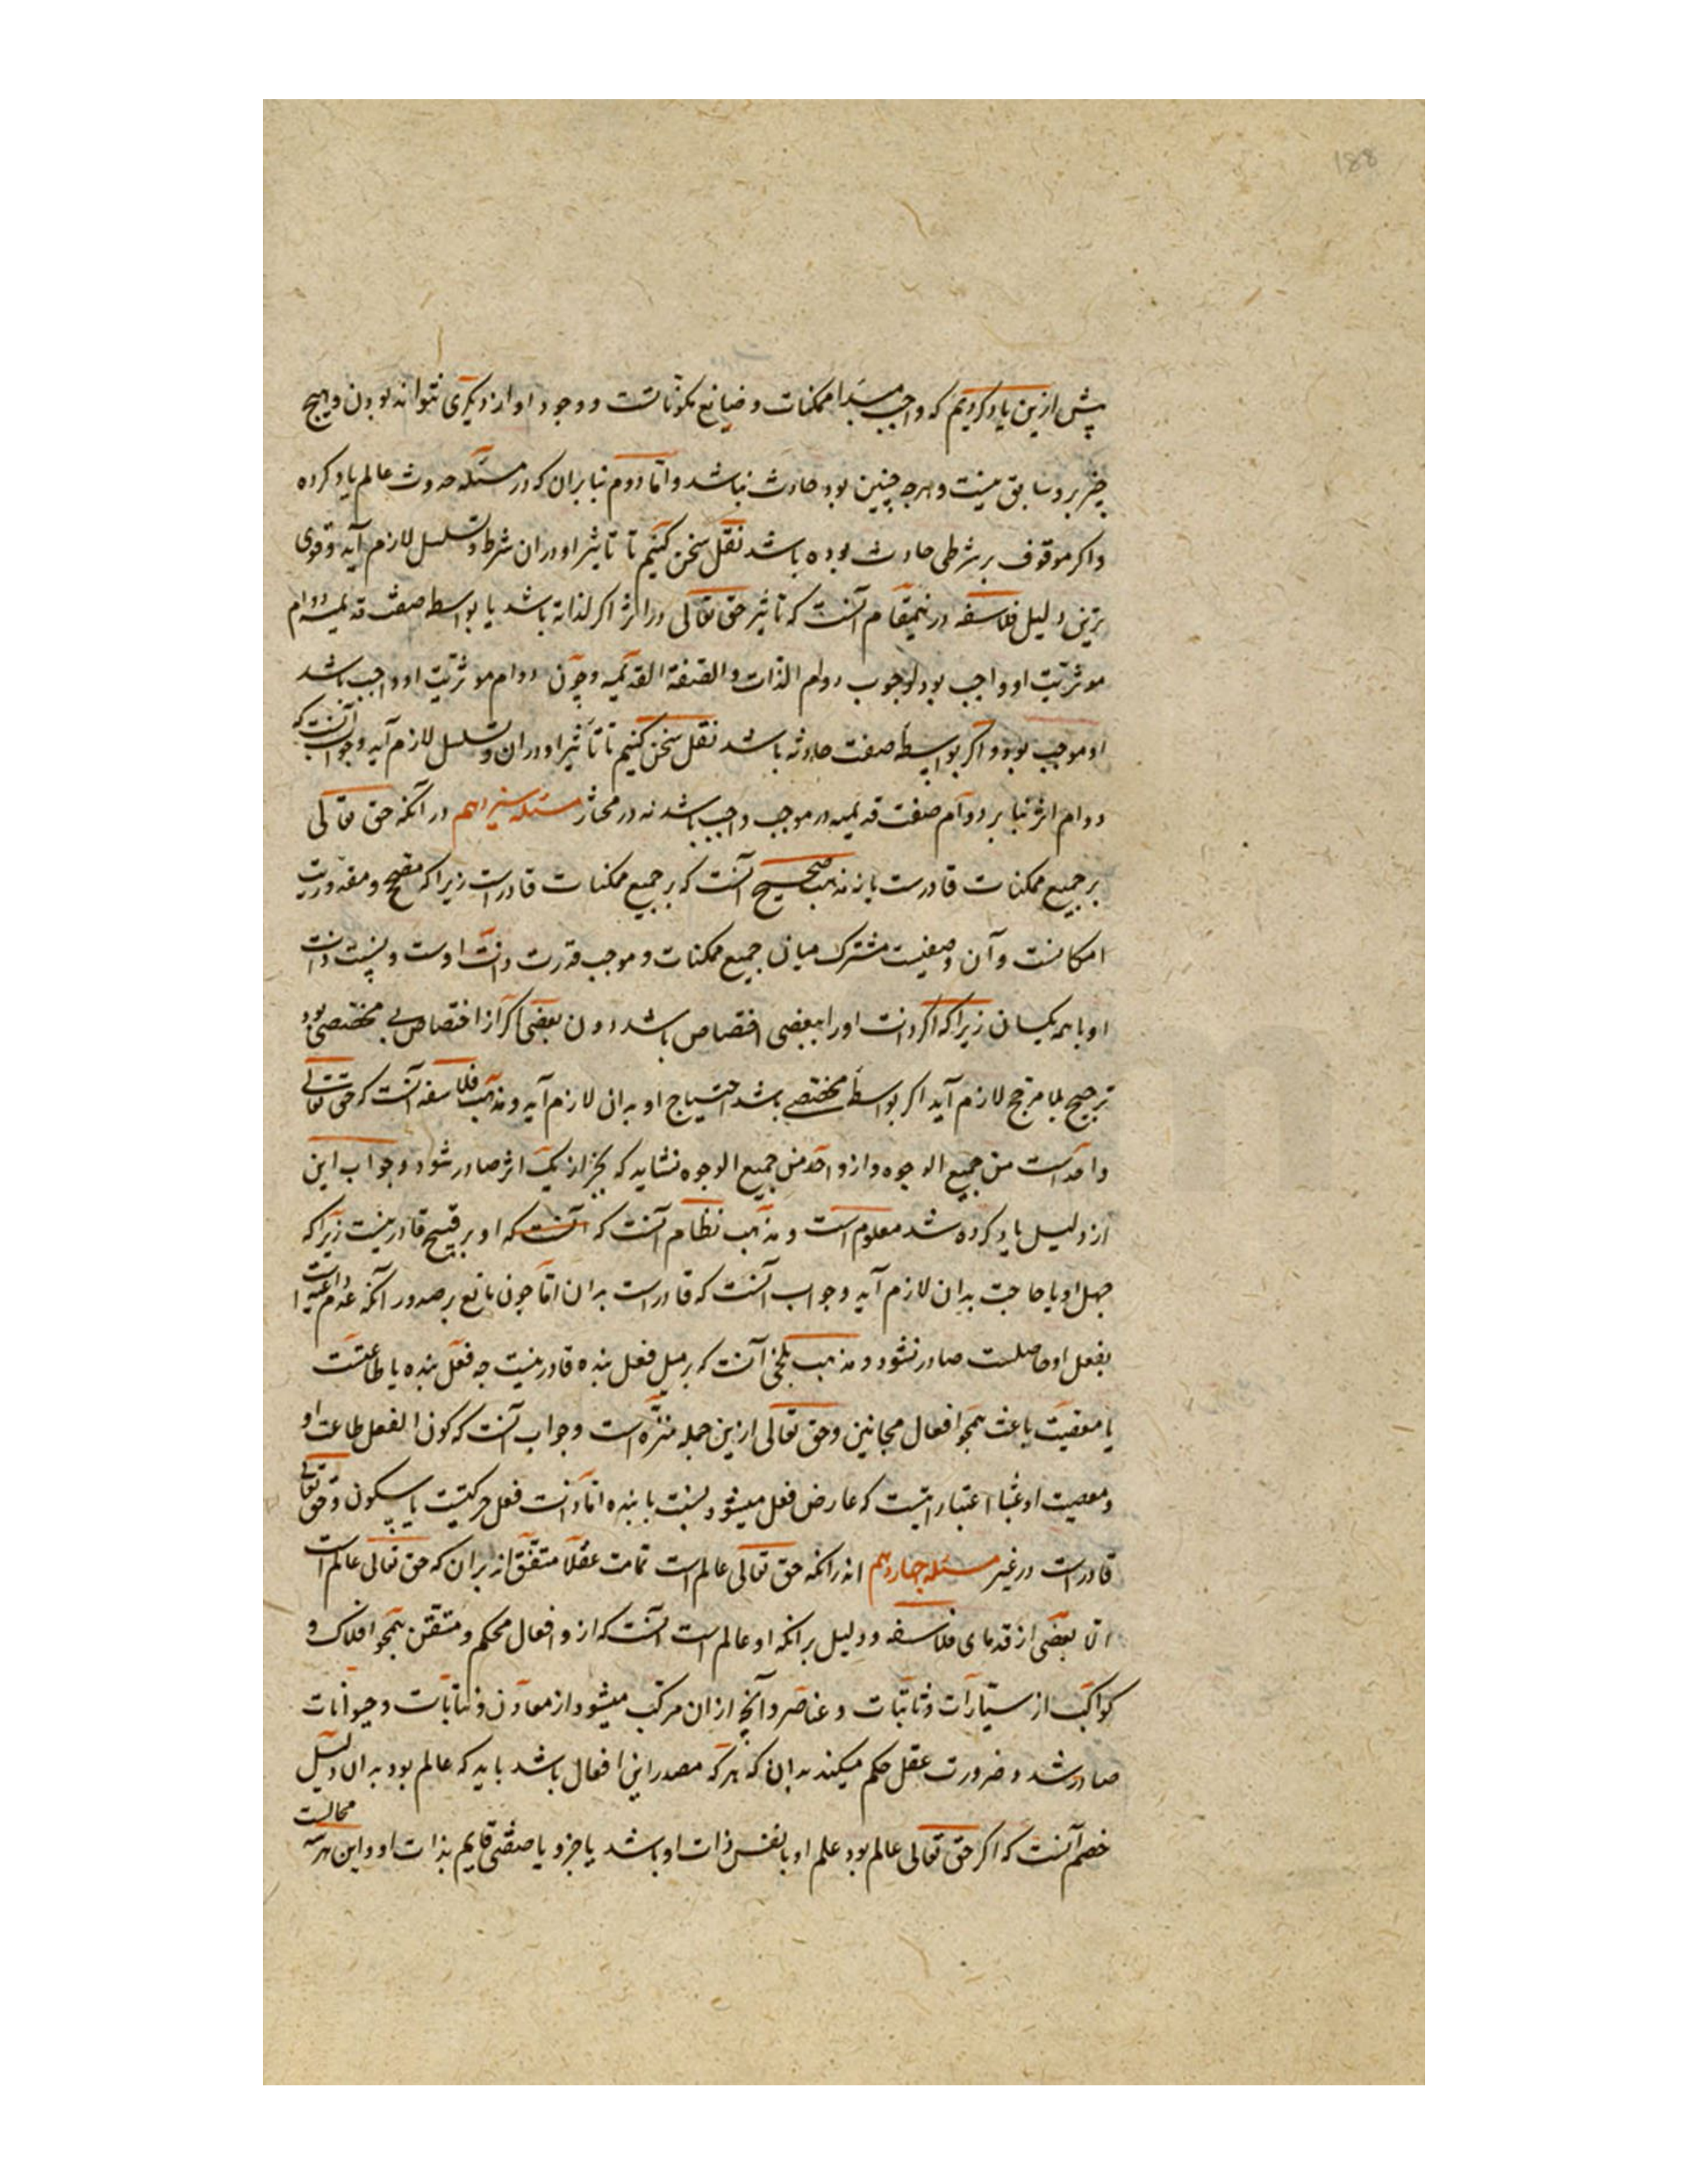 188
پیش ازین یاد کردیم که واجب مبدا ممکنات و صانع مکوناتست و وجود او از دیگری نتواند بودن و هیچ
چیز برو سابق نیست و هرچه چنین بود حادث نباشد و اما دوم بنابران که در مسئله حدوث عالم یاد کرده
واکر موقوف بر شرطی حادث بوده باشد نقل سخن کنیم تا تاثیر او دران شرط و تسلسل لازم آید و قوی
ترین دلیل فلاسفه درینمقام آنست که تاثیر حق تعالی در اثر اکر لذاته باشد یا بواسطه صفت قدیمه دوام
موثریت او واجب بود لوجوب دوام الذات والصفة القدیمه و چون دوام موثریت او واجب باشد
او موجب بود و اکر بواسطه صفت حادثه باشد نقل سخن کنیم تا تاثیر او دران و تسلسل لازم آید و جواب آنست که
دوام اثر بنا بر دوام صفت قدیمه در موجب واجب باشد نه در مختار مسئله سیزدهم در آنکه حق تعالی
بر جمیع ممکنات قادرست یا نه مذهب صحیح آنست که بر جمیع ممکنات قادر است زیرا که مصحح و مقدوریت
امکانست و آن وصفیست مشترک میان جمیع ممکنات و موجب قدرت ذات اوست و نسبت ذات
او با همه یکسان زیرا که اکر ذات او را ببعضی اختصاص باشد دون بعضی اکر آن اختصاص بی مخصصی بود
ترجیح بلا مرجح لازم آید اکر بواسطه مخصصی باشد احتیاج او بدان لازم آید و مذهب فلاسفه آنست که حق تعالی
واحدست من جمیع الوجوه و از واحد من جمیع الوجوه نشاید که بجز از یک اثر صادر شود و جواب این
از دلیل یاد کرده شد معلوم است و مذهب نظام آنست که آنست که او بر قبیح قادر نیست زیرا که
جهل او یا حاجت بدان لازم آید و جواب آنست که قادر است بدان اما چون مانع بر صدور آنکه عدم داعیه است
بفعل او حاصلست صادر نشود و مذهب بلخی آنست که بر مثل فعل بنده قادر نیست چه فعل بنده یا طاعتست
یا معصیت یا عبث همچو افعال مجانین و حق تعالی ازین جمله منزه است و جواب آنست که کون الفعل طاعت او
و معصیت او عبثا اعتباراتیست که عارض فعل میشود بنسبت با بنده اما ذات فعل حرکتیست یا سکون و حق تعالی
قادر است در غیر مسئله چهاردهم اندرانکه حق تعالی عالم است تمامت عقلا متفق اند بران که حق تعالی عالم است
الا بعضی از قدمای فلاسفه و دلیل برانکه او عالم است آنست که از و افعال محکم و متقن همچو افلاک و
کواکب از سیارات و ثابتات و عناصر و آنچه ازان مرکب میشود از معادن و نباتات و حیوانات
صادر شد و ضرورت عقل حکم میکند بدان که هر که مصدر این افعال باشد باید که عالم بود بدان و دلیل
خصم آنست که اکر حق تعالی عالم بود علم او یا نفس ذات او باشد یا جزو یا صفتی قایم بذات او و این هر سه محالست